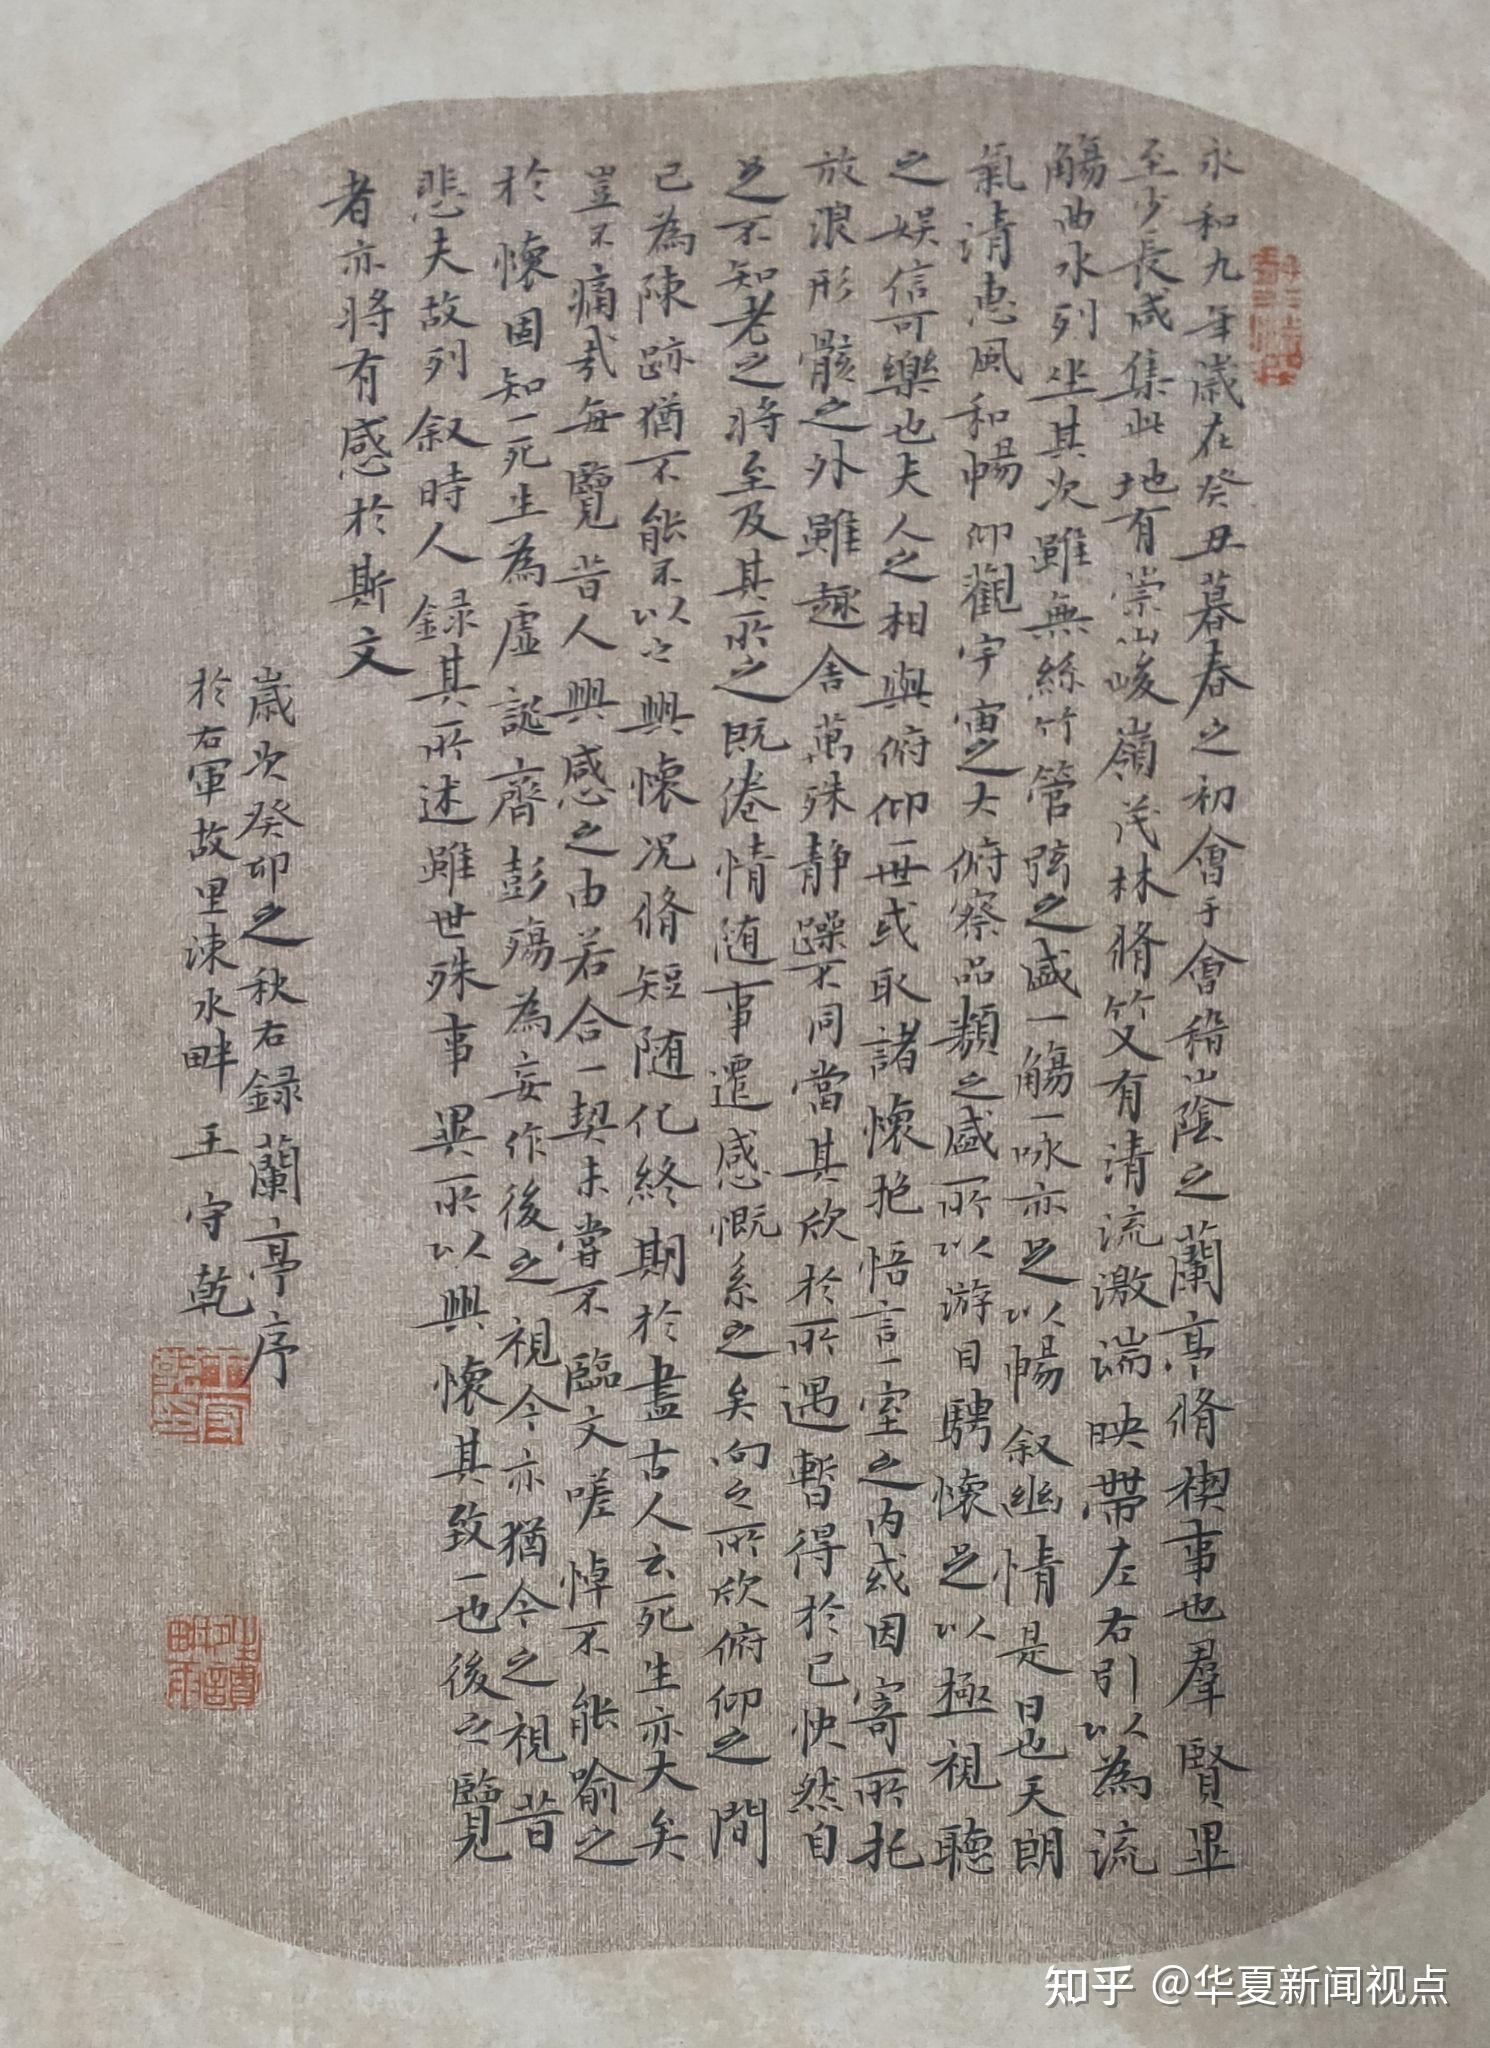 永和九年歲在癸丑暮春之初會于會稽山陰之蘭亭脩禊事也羣賢畢
至少長咸集此地有崇山峻嶺茂林脩竹又有清流激湍映帶左右引以為流
觴曲水列坐其次雖無絲竹管弦之盛一觴一咏亦足以暢叙幽情是日也天朗
氣清惠風和暢仰觀宇宙之大俯察品類之盛所以游目騁懷足以極視聽
之娛信可樂也夫人之相與俯仰一世或取諸懷抱悟言一室之内或因寄所托
放浪形骸之外雖趣舍萬殊静躁不同當其欣於所遇暫得於己快然自
足不知老之將至及其所之既倦情随事遷感慨系之矣向之所欣俯仰之間
已為陳跡猶不能不以之興懷况脩短随化終期於盡古人云死生亦大矣
豈不痛哉每覽昔人興感之由若合一契未嘗不臨文嗟悼不能喻之
於懷固知一死生為虛誕齊彭殤為妄作後之視今亦猶今之視昔
悲夫故列叙時人録其所述雖世殊事異所以興懷其致一也後之覽
者亦將有感於斯文
歲次癸卯之秋右録蘭亭序
於右軍故里涑水畔 王守乾
知乎 @华夏新闻视点